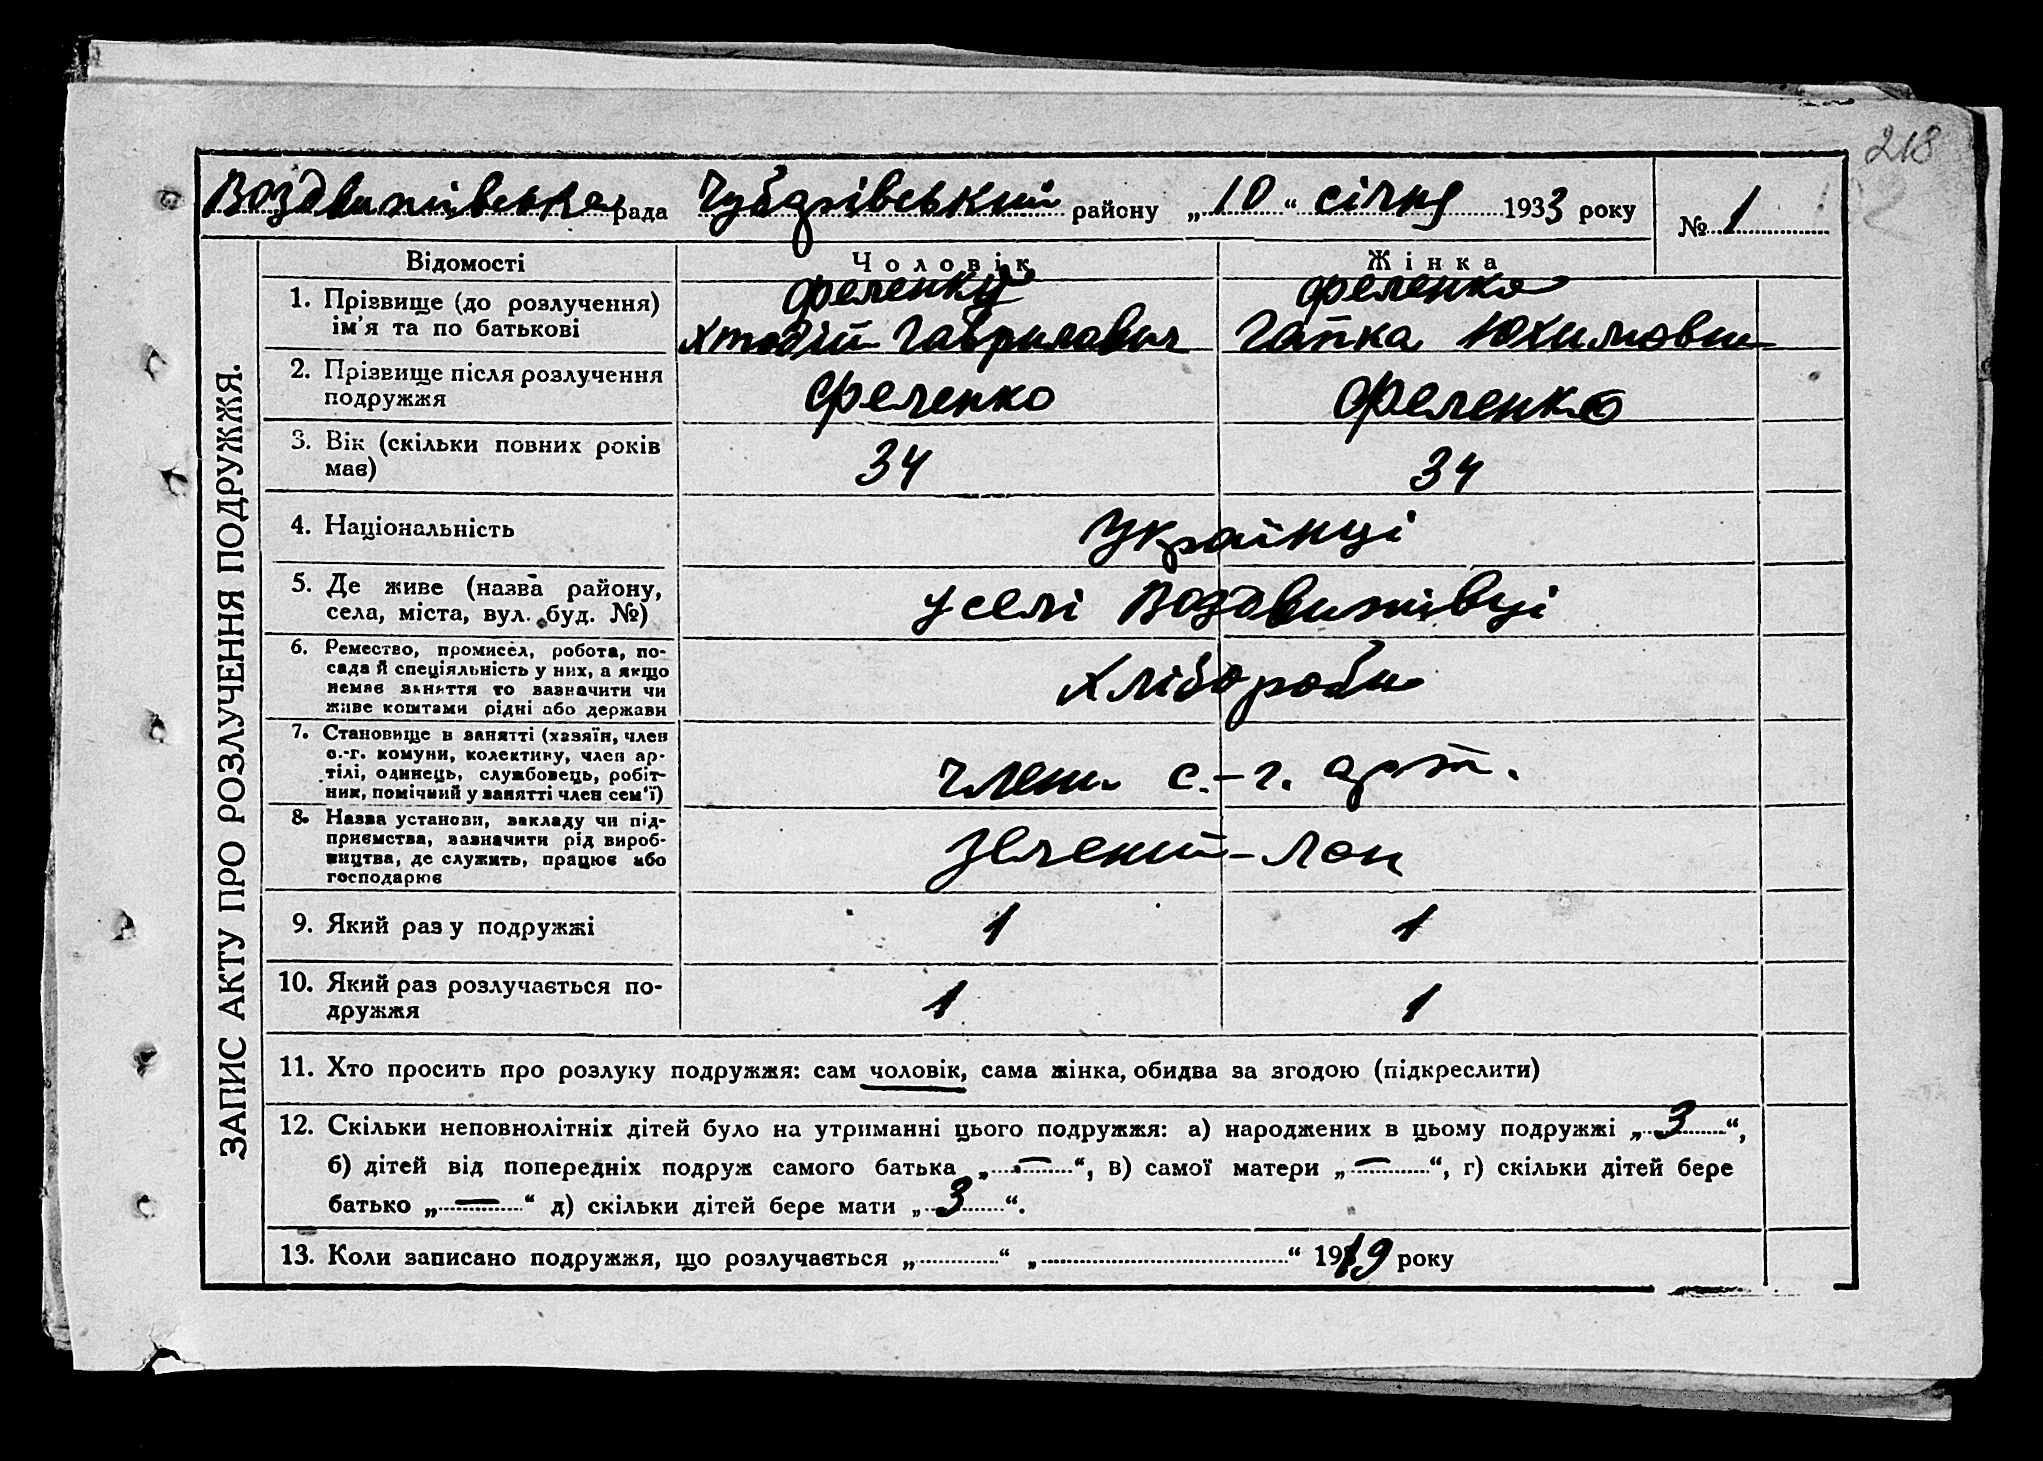 218
Воздвижівська рада Чубарівський району „10“ січня 1933 року № 1
ЗАПИС АКТУ ПРО РОЗЛУЧЕННЯ ПОДРУЖЖЯ.
Відомості Чоловік Жінка
1. Прізвище (до розлучення) Феленко Феленко
ім’я та по батькові Гаврилович Гапка Юхимовна
2. Прізвище після розлучення
подружжя Феленко Феленко
3. Вік (скільки повних років
має) 34 34
4. Національність Українці
5. Де живе (назва району,
села, міста, вул. буд. №) у селі Воздвижівці
6. Ремество, промисел, робота, по-
сада й спеціяльність у них, а якщо
немає заняття то зазначити чи
живе коштами рідні або держави Хлібороби
7. Становище в занятті (хазяїн, член
с.-г. комуни, колективу, член ар-
тілі, одинець, службовець, робіт-
ник, помічний у занятті член сем’ї) члени с.-г. арт.
8. Назва установи, закладу чи під-
приємства, зазначити рід вироб-
ництва, де служить, працює або
господарює Зелений-Лан
9. Який раз у подружжі 1 1
10. Який раз розлучається по-
дружжя 1 1
11. Хто просить про розлуку подружжя: сам чоловік, сама жінка, обидва за згодою (підкреслити)
12. Скільки неповнолітніх дітей було на утриманні цього подружжя: а) народжених в цьому подружжі „3“,
б) дітей від попередніх подруж самого батька „—“, в) самої матери „—“, г) скільки дітей бере
батько „—“ д) скільки дітей бере мати „3“.
13. Коли записано подружжя, що розлучається „ “ „ “ 1919 року